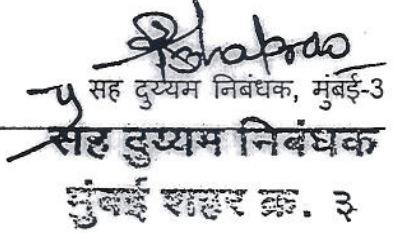 सह दुय्यम निबंधक, मुंबई-3
सह दुय्यम निबंधक
मुंबई शहर क्र. ३